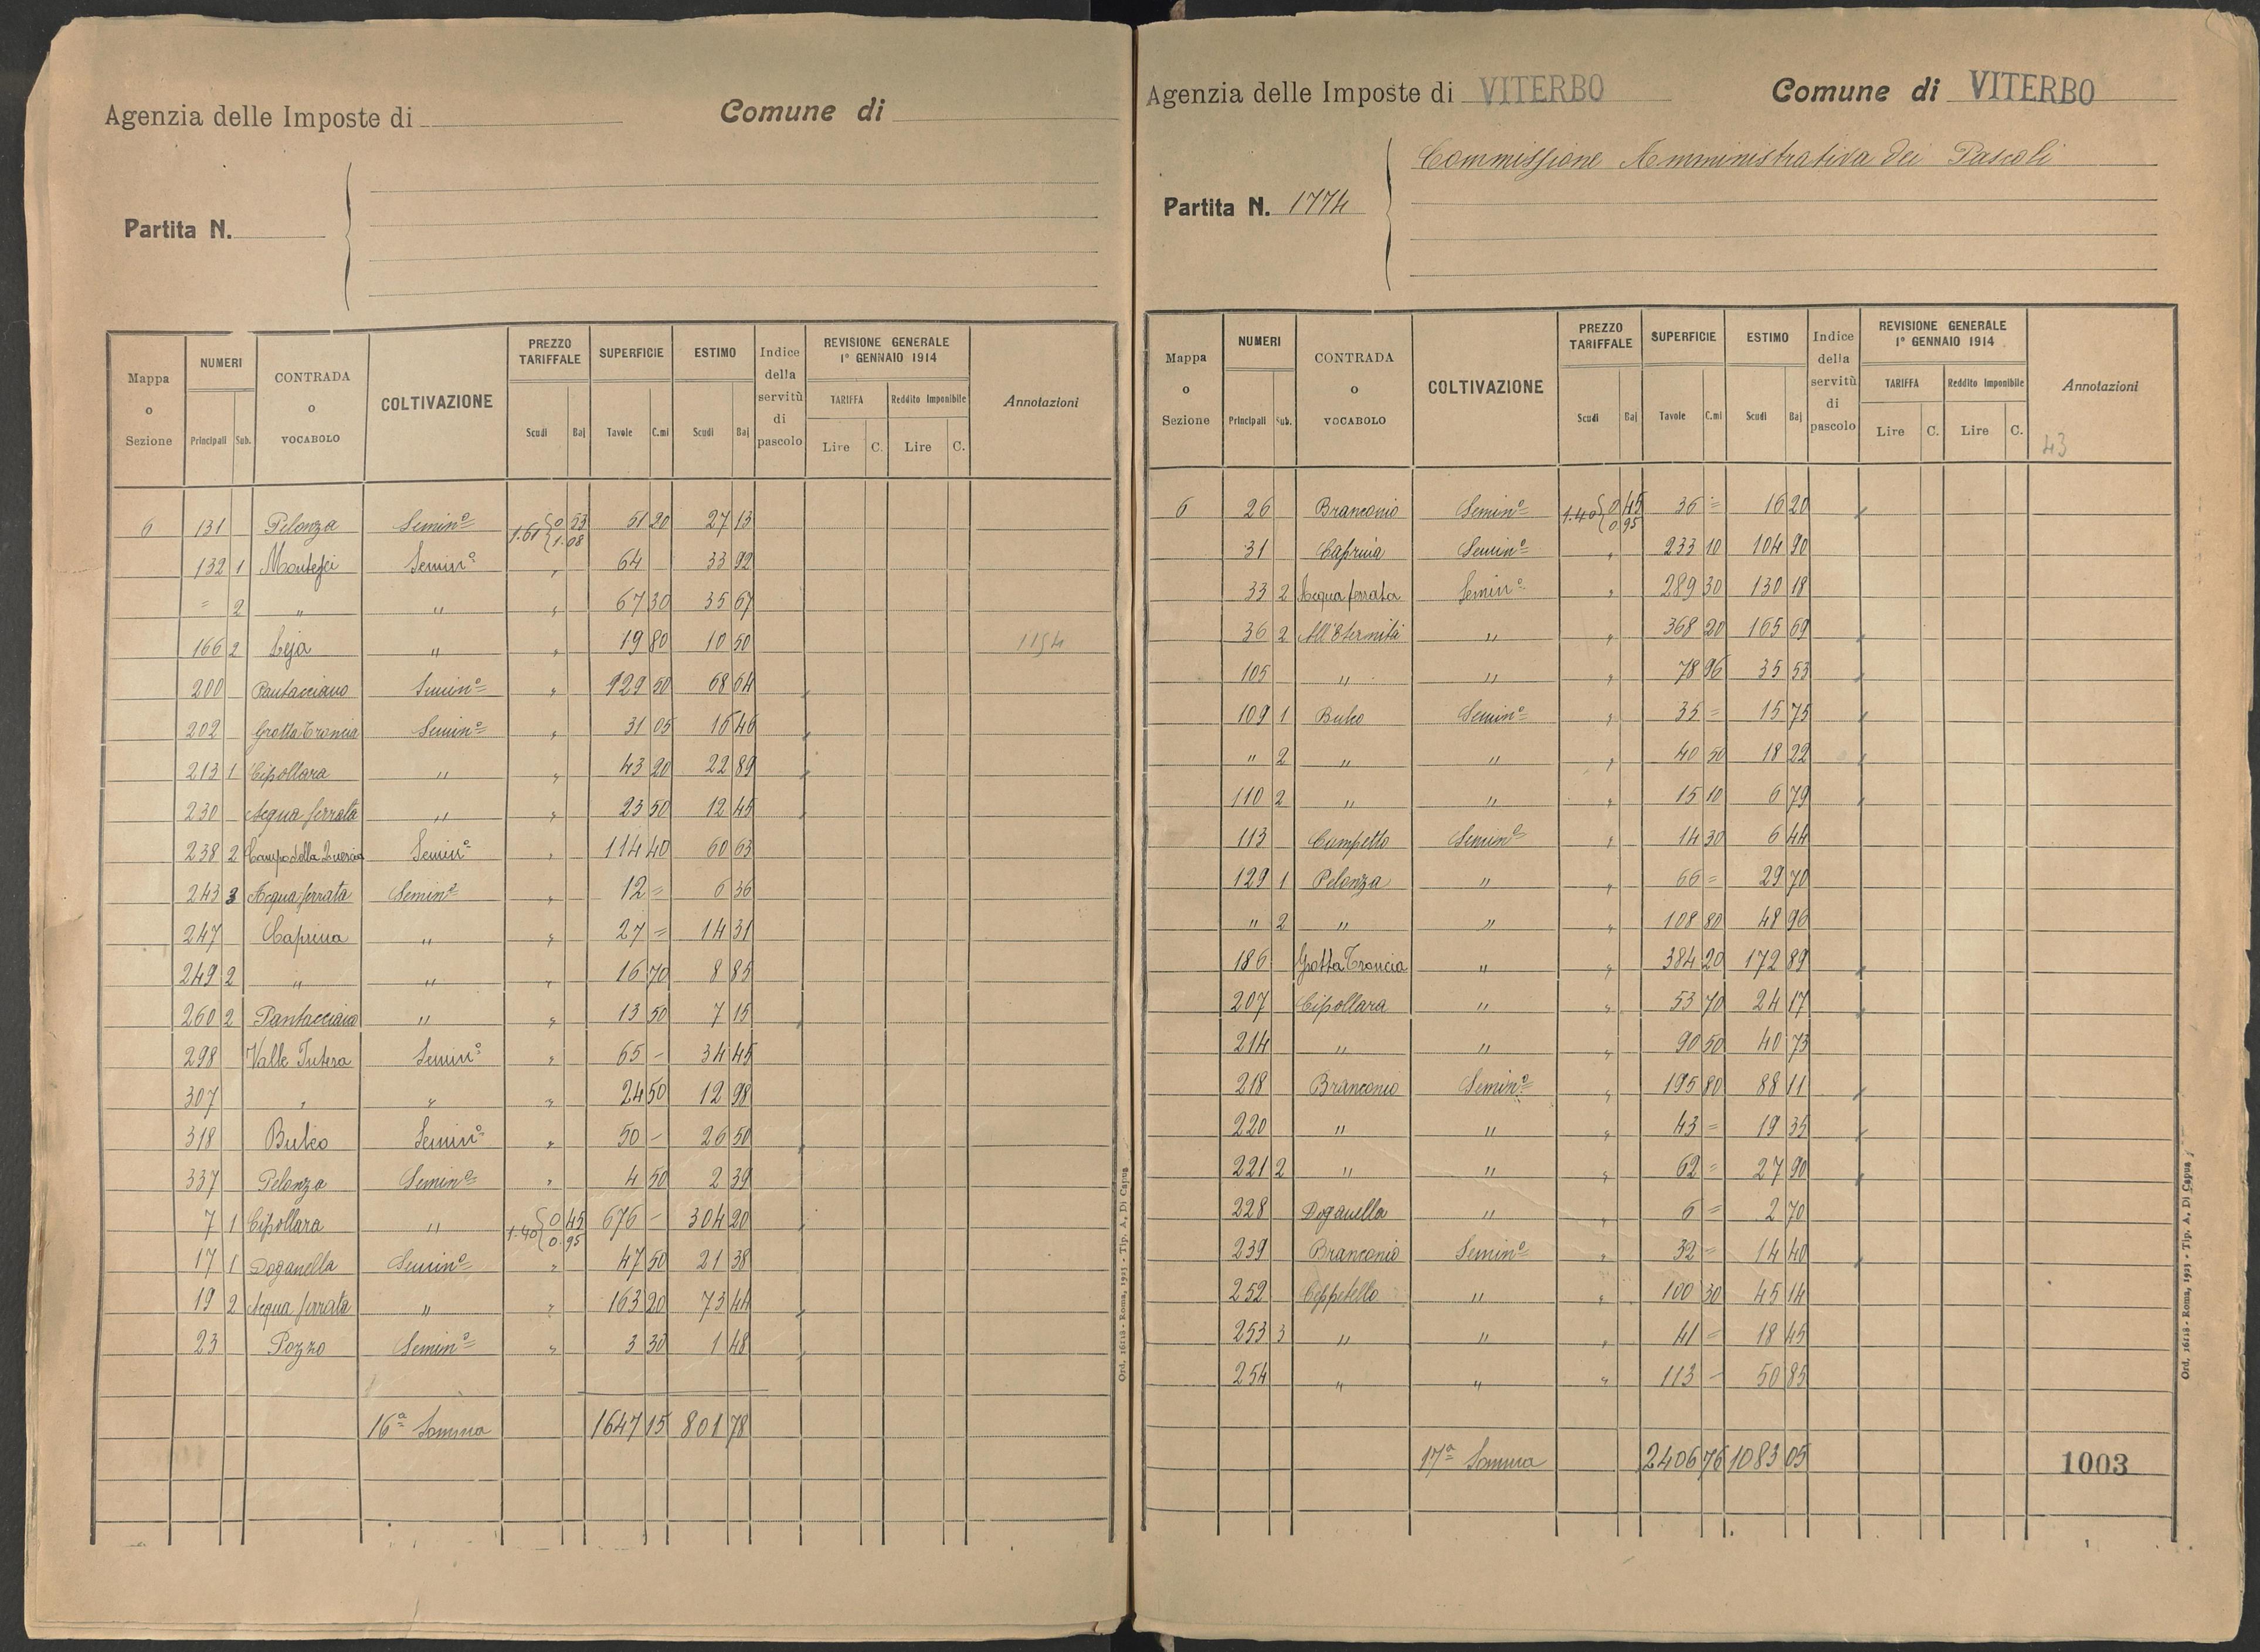 Agenzia delle Imposte di
Comune di
Partita N.
Mappa o Sezione | NUMERI Principali Sub. | CONTRADA o VOCABOLO | COLTIVAZIONE | PREZZO TARIFFALE Scudi Baj | SUPERFICIE Tavole C.mi | ESTIMO Scudi Baj | Indice della servitù di pascolo | REVISIONE GENERALE 1° GENNAIO 1914 TARIFFA Lire C. Reddito Imponibile Lire C. | Annotazioni
6 131 Pelonza Semin.o 1.61 { 0 53 1.08 51 20 27 13
132 1 Montejci Semin.o " 64 33 92
= 2 " " " 67 30 35 67
166 2 Leja " " 19 80 10 50 1194
200 Pantacciano Semin.o " 929 50 68 64
202 Grotta Troncia Semin.o " 31 05 16 46
213 1 Cipollara " " 43 20 22 89
230 Acqua ferrata " " 23 50 12 45
238 2 Campo della Quercia Semin.o " 114 40 60 63
243 3 Acqua ferrata Semin.o " 12 = 6 36
247 Caprina " " 27 = 14 31
249 2 " " " 16 70 8 85
260 2 Pantacciano " " 13 50 7 15
298 Valle Intera Semin.o " 65 - 34 45
307 " " " 24 50 12 98
318 Buleo Semin.o " 50 - 26 50
337 Pelonza Semin.o " 4 50 2 39
7 1 Cipollara " 1.40 { 0 45 0.95 676 - 304 20
17 1 Doganella Semin.o " 47 50 21 38
19 2 Acqua ferrata " " 163 20 73 44
23 Pozzo Semin.o " 3 30 1 48
16a Somma 1647 15 801 78
Ord. 16118 - Roma, 1923 - Tip. A. Di Capua
Agenzia delle Imposte di VITERBO
Comune di VITERBO
Commissione Amministrativa dei Pascoli
Partita N. 1774
Mappa o Sezione | NUMERI Principali Sub. | CONTRADA o VOCABOLO | COLTIVAZIONE | PREZZO TARIFFALE Scudi Baj | SUPERFICIE Tavole C.mi | ESTIMO Scudi Baj | Indice della servitù di pascolo | REVISIONE GENERALE 1° GENNAIO 1914 TARIFFA Lire C. Reddito Imponibile Lire C. | Annotazioni
43
6 26 Branconio Semin.o 1.40 { 0 45 0 95 36 = 16 20
31 Caprina Semin.o " 233 10 104 90
33 2 Acqua ferrata Semin.o " 289 30 130 18
36 2 All'Eternità " " 368 20 165 69
105 " " " 78 96 35 53
109 1 Buleo Semin.o " 35 = 15 75
" 2 " " " 40 50 18 22
110 2 " " " 15 10 6 79
113 Campetto Semin.o " 14 30 6 44
129 1 Pelonza " " 66 = 29 70
" 2 " " " 108 80 48 96
186 Grotta Troncia " " 384 20 172 89
207 Cipollara " " 53 70 24 17
214 " " " 90 50 40 73
218 Branconio Semin.o " 195 80 88 11
220 " " " 43 = 19 35
221 2 " " " 62 = 27 90
228 Doganella " " 6 = 2 70
239 Branconio Semin.o " 32 = 14 40
252 Ceppetello " " 100 30 45 14
253 3 " " " 41 = 18 45
254 " " " 113 - 50 85
17a Somma 2406 76 1083 05
1003
Ord. 16118 - Roma, 1923 - Tip. A. Di Capua